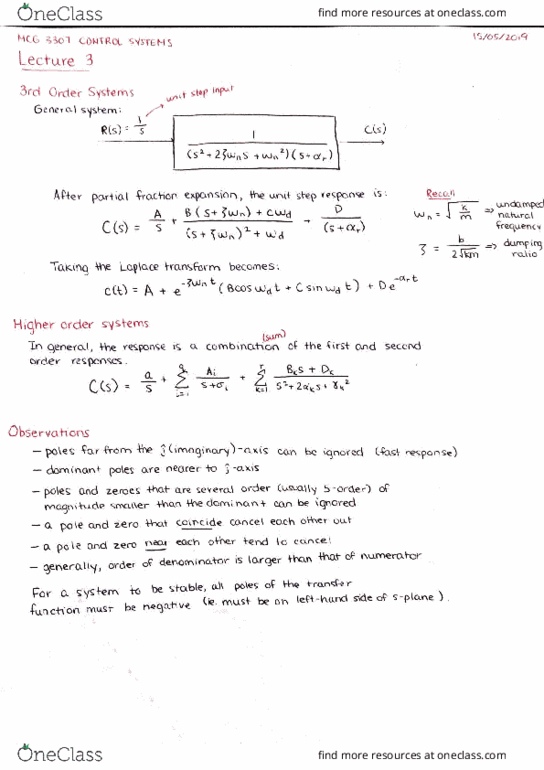 OneClass find more resources at oneclass.com
MCG 3307 CONTROL SYSTEMS 15/05/2019
Lecture 3
3rd Order Systems
General system:
unit step input
R(s) = 1/s
1/((s²+2ζωₙs+ωₙ²)(s+αᵣ))
C(s)
After partial fraction expansion, the unit step response is:
C(s) = A/s + (B(s+ζωₙ)+Cωd)/((s+ζωₙ)²+ωd) + D/(s+αᵣ)
Recall
ωₙ = √(k/m) ⇒ undamped natural frequency
ζ = b/(2√km) ⇒ dumping ratio
Taking the Laplace transform becomes:
c(t) = A + e^(-ζωₙt) (Bcosωdt + Csinωdt) + De^(-αᵣt)
Higher order systems
(sum)
In general, the response is a combination of the first and second
order responses.
C(s) = a/s + Σ Aᵢ/(s+σᵢ) + Σ (Bₖs + Dₖ)/(s²+2αₖs+γₖ²)
Observations
- poles far from the j(imaginary)-axis can be ignored (fast response)
- dominant poles are nearer to j-axis
- poles and zeroes that are several order (usually 5-order) of
magnitude smaller than the dominant can be ignored
- a pole and zero that coincide cancel each other out
- a pole and zero near each other tend to cancel
- generally, order of denominator is larger than that of numerator
For a system to be stable, all poles of the transfer
function must be negative (ie. must be on left-hand side of s-plane).
OneClass find more resources at oneclass.com